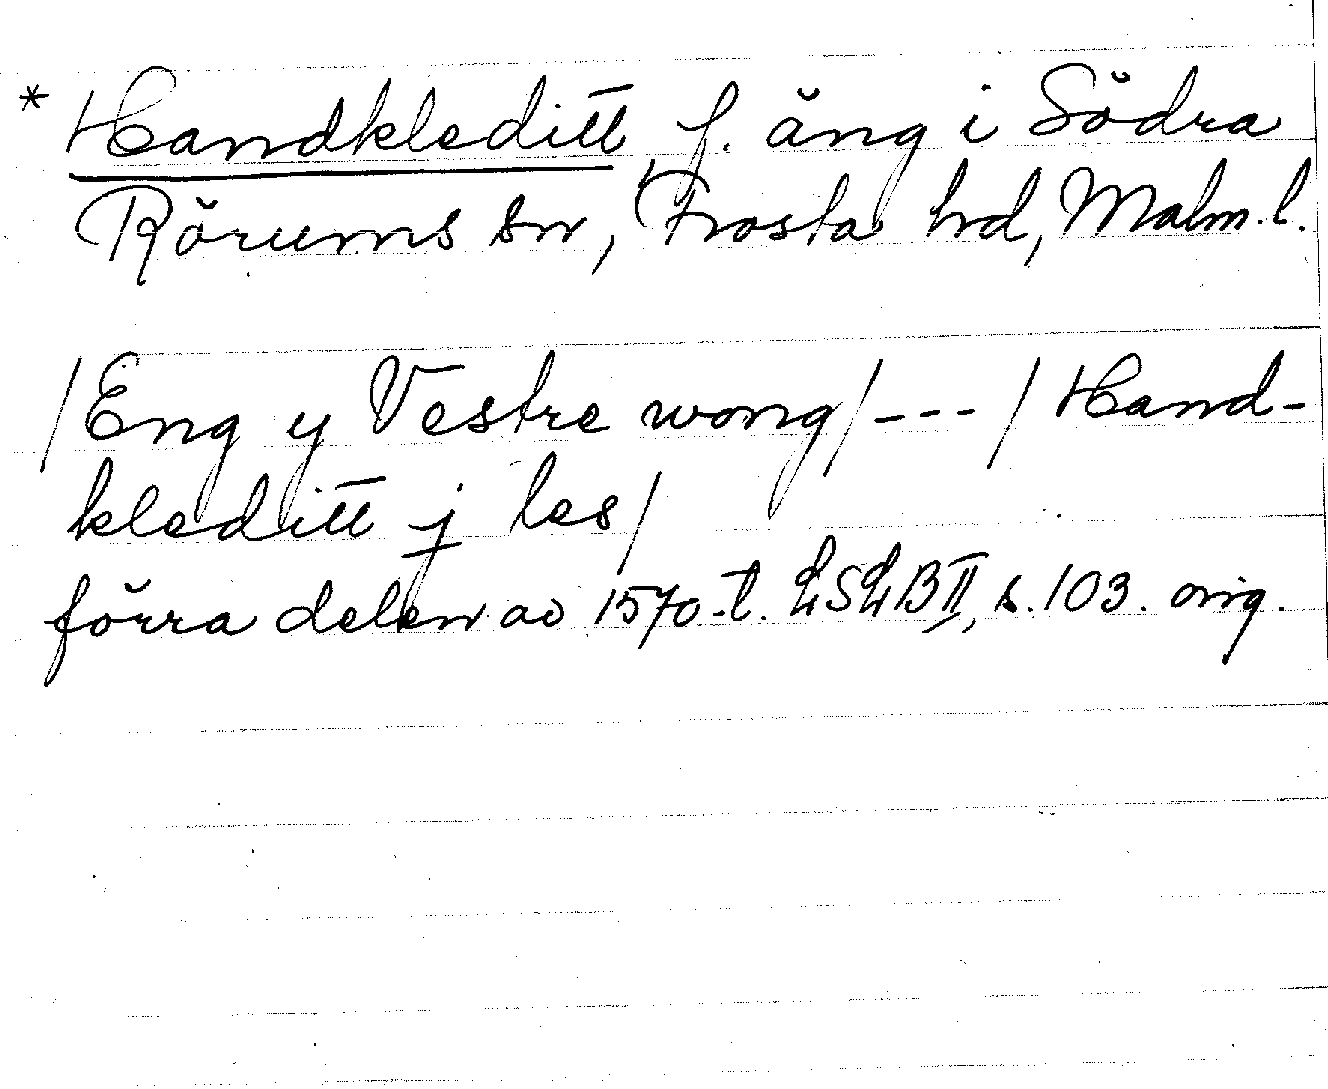 * Handkleditt, f. äng i Södra
Rörums sn, Frosta hd, Malm. l.
/Eng y Vestre wong/ --- / Hand-
kleditt j les/
förra delen av 1570-t. LSLB II, s. 103. orig.